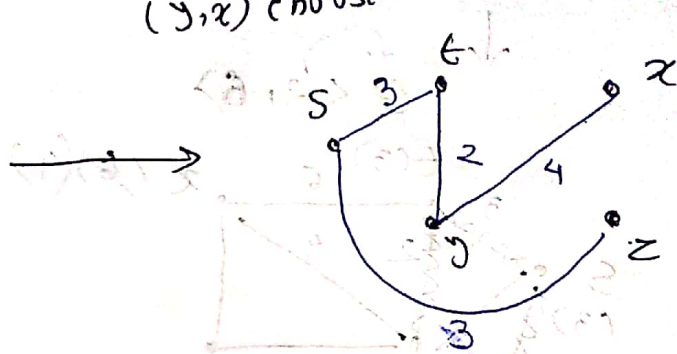 (y,x) choose
t
x
S
3
2
4
y
z
3